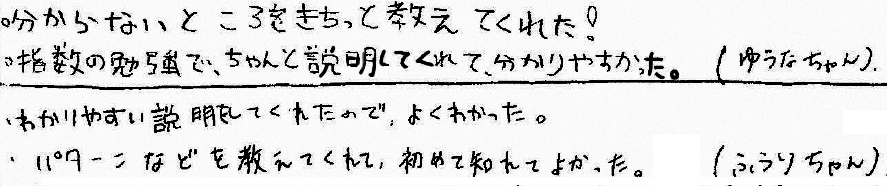 ○分からないところをきちっと教えてくれた!
○指数の勉強で、ちゃんと説明してくれて、分かりやすかった。 (ゆうなちゃん).
・わかりやすい説明をしてくれたので、よくわかった。
・パターンなどを教えてくれて、初めて知れてよかった。 (ふうりちゃん)